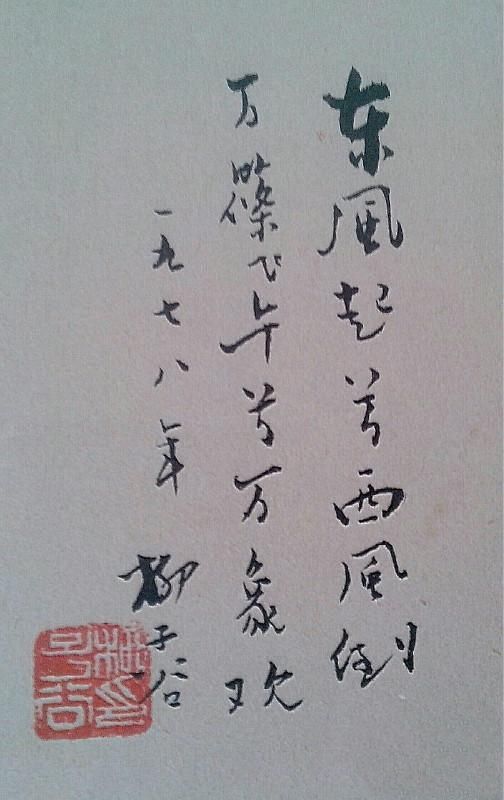 东風起兮西風倒
万篠飞午兮万象欢
一九七八年 柳子谷